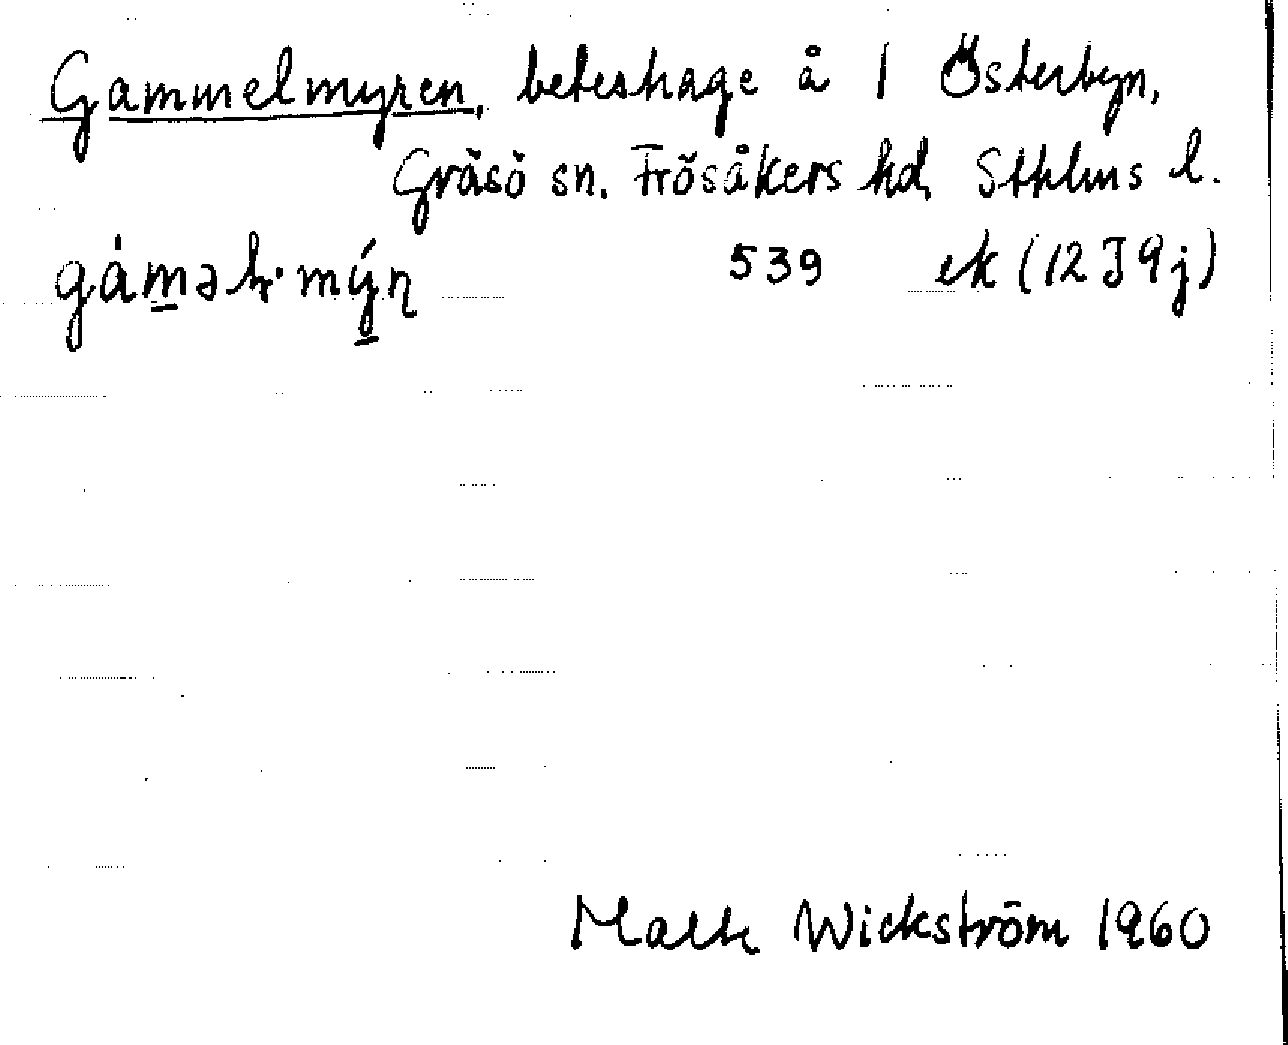 Gammelmyren, beteshage å 1 Österbyn,
Gräsö sn. Frösåkers hd, Sthlms l.
539 ek (12 I 9 j)
Malte Wickström 1960